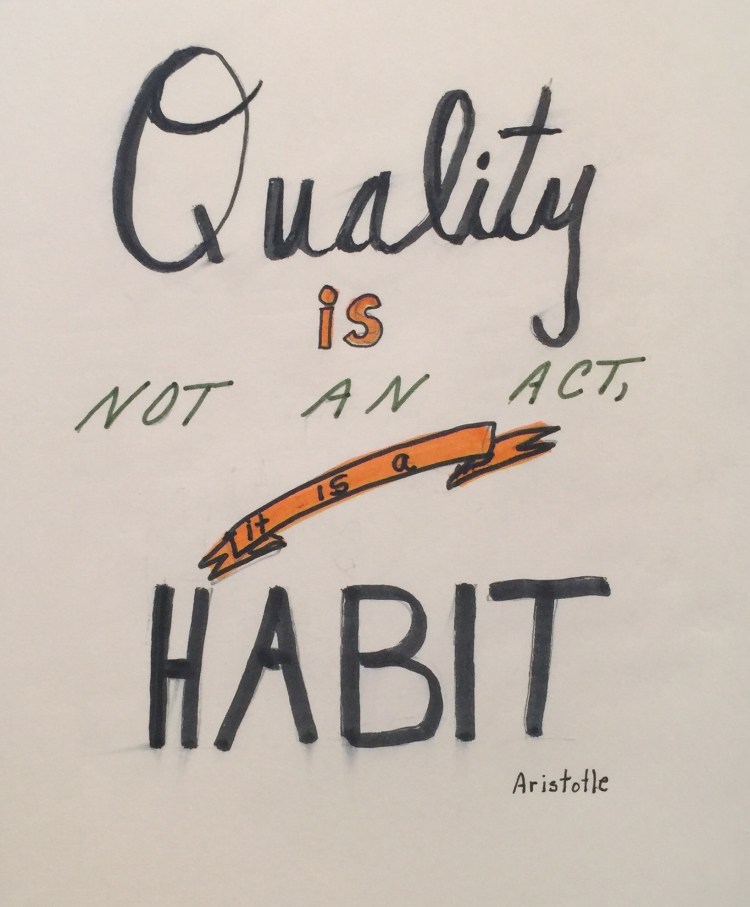 Quality
is
NOT AN ACT,
it is a
HABIT
Aristotle